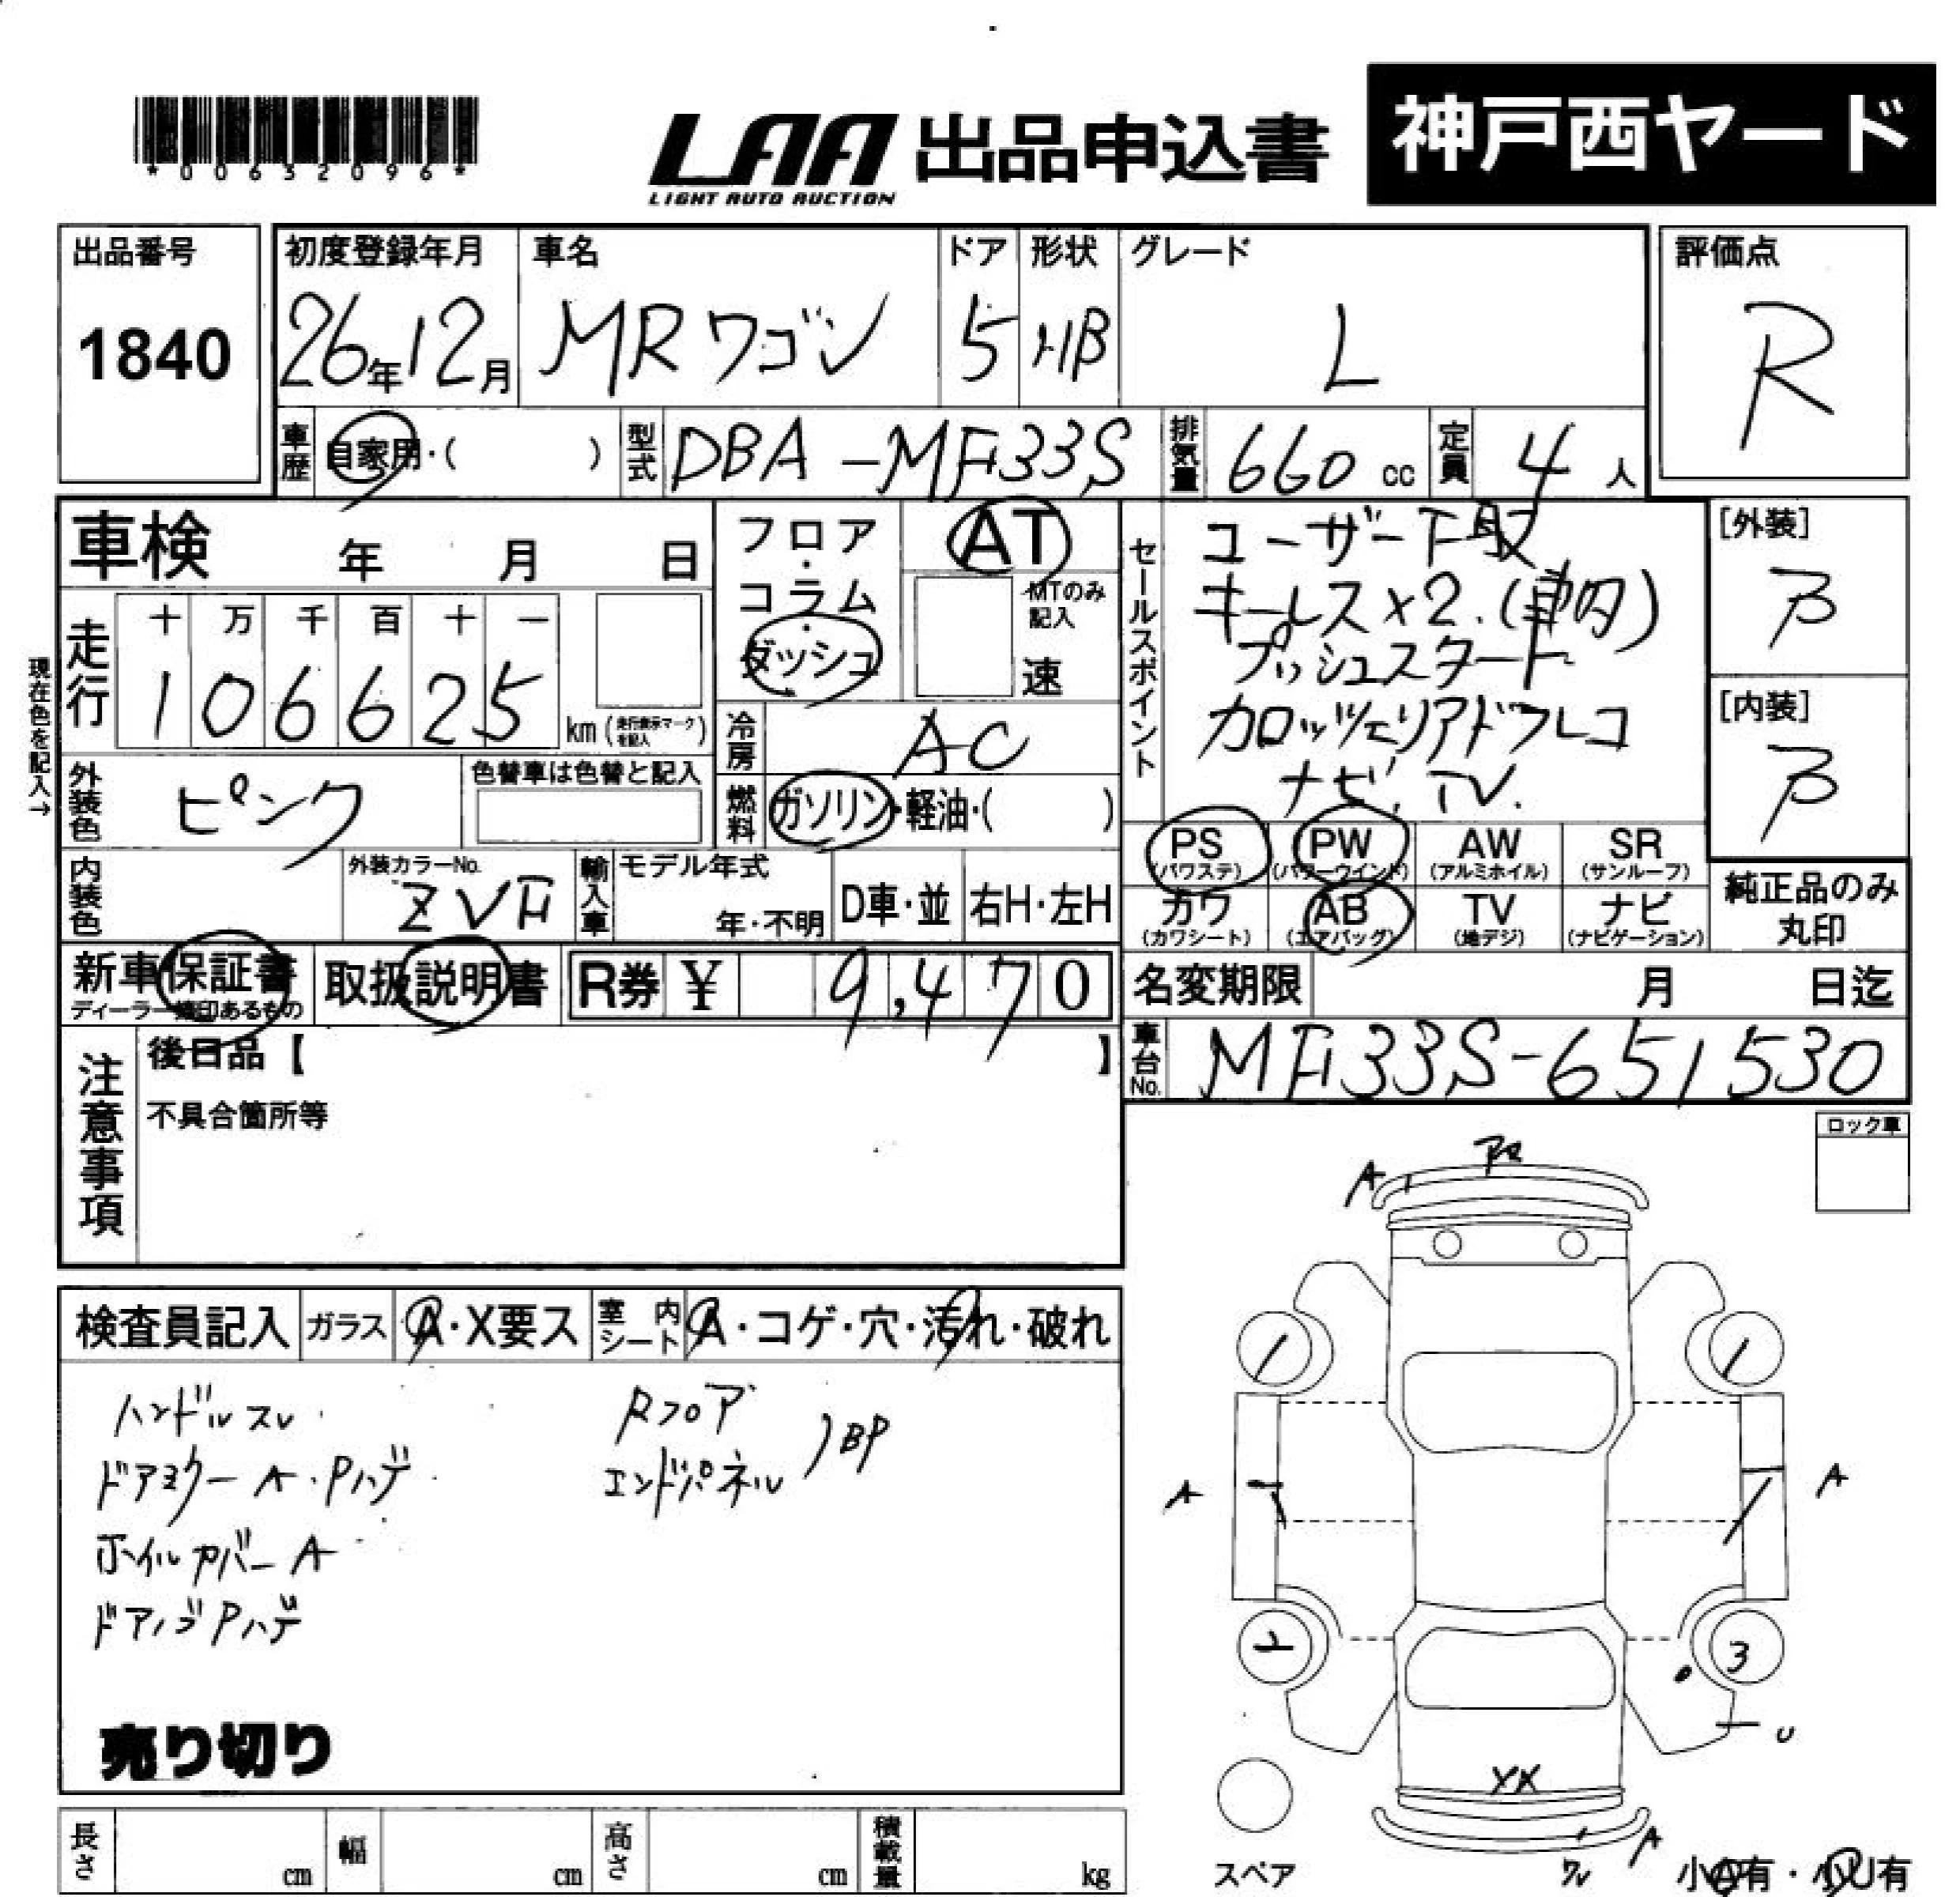 *00632096*
LAA 出品申込書 神戸西ヤード
LIGHT AUTO AUCTION
出品番号
1840
初度登録年月
26年12月
車名
MRワゴン
ドア
5
形状
HB
グレード
L
評価点
R
車歴 自家用・( )
型式 DBA-MF33S
排気量 660 cc
定員 4 人
車検 年 月 日
フロア・コラム・ダッシュ
AT
MTのみ記入
速
セールスポイント
ユーザー下取
キーレス×2.(車内)
プッシュスタート
カロッツェリアドラレコ
ナビ.TV.
[外装]
B
[内装]
B
現在色を記入→
走行
十 万 千 百 十 一
1 0 6 6 2 5
km(走行表示マークを記入)
冷房 AC
外装色 ピンク
色替車は色替と記入
燃料 ガソリン・軽油・( )
PS (パワステ)
PW (パワーウインド)
AW (アルミホイル)
SR (サンルーフ)
カワ (カワシート)
AB (エアバッグ)
TV (地デジ)
ナビ (ナビゲーション)
純正品のみ丸印
内装色
外装カラーNo.
ZVF
輸入車
モデル年式
年・不明
D車・並
右H・左H
新車保証書
ディーラー捺印あるもの
取扱説明書
R券 ¥ 9,470
名変期限 月 日迄
車台No. MF33S-651530
注意事項
後日品【 】
不具合箇所等
ロック車
検査員記入
ガラス A・X要ス
室内シート A・コゲ・穴・汚れ・破れ
ハンドルスレ
ドアミラーA.Pハゲ
ホイルカバーA
ドアノブPハゲ
Rフロア
エンドパネル
)BP
売り切り
A
A
A
3
U
XX
A
スペア
小A有・小U有
長さ cm
幅 cm
高さ cm
積載量 kg